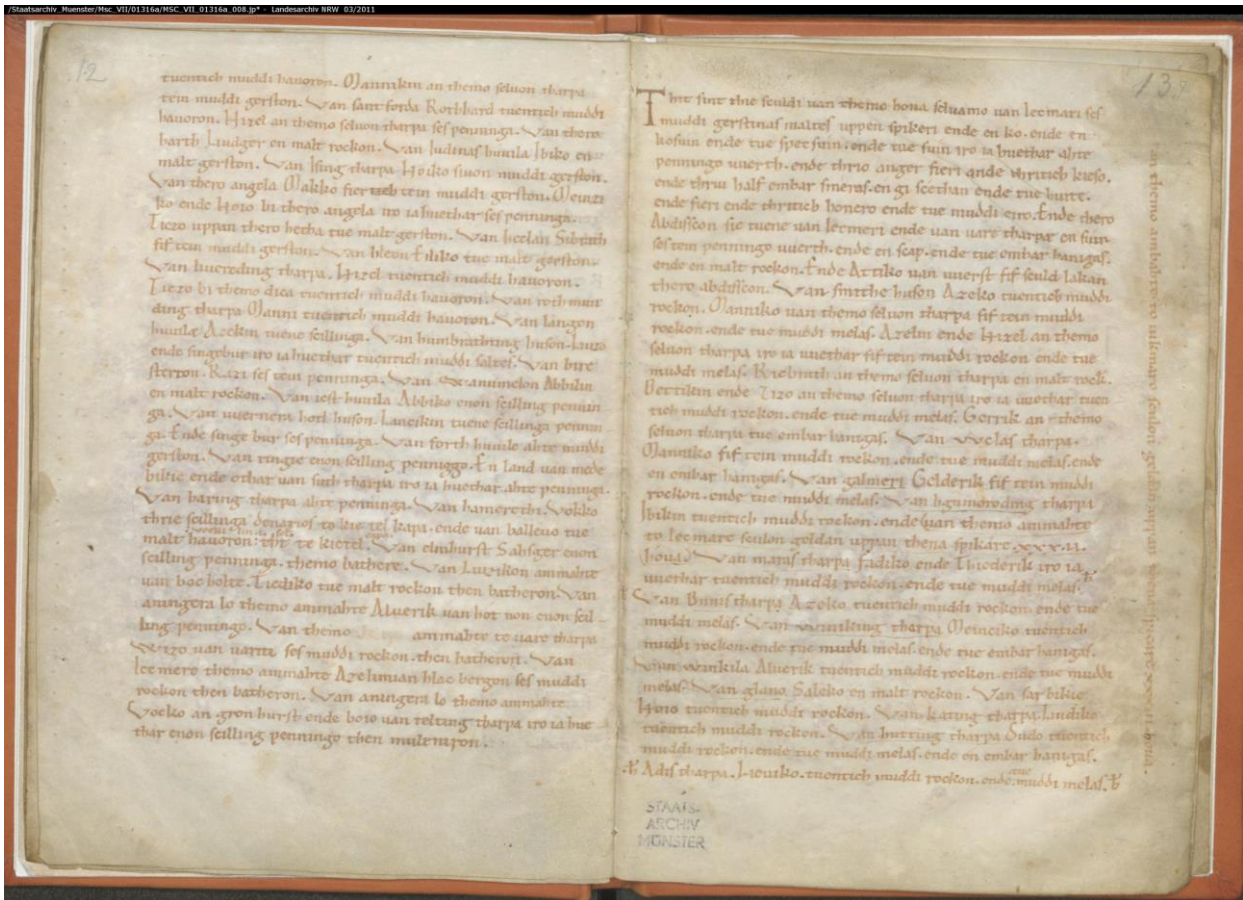 /Staatsarchiv_Muenster/Msc_VII/01316a/MSC_VII_01316a_008.jp* - Landesarchiv NRW 03/2011
12
tuentich muddi hauoron. Mannikin an themo seluon tharpa
tein muddi gerston. Van santforda Rothhard tuentich muddi
hauoron. Hizel an themo seluon tharpa ses penninga. Van thero
harth Liudger en malt rockon. Van Iudinas huuila Ibiko en
malt gerston. Van Ising tharpa Hoiko siuon muddi gerston.
Van thero angela Makko fier tein muddi gerston. Meinzi
ko ende Hoio bi thero angela iro iahuethar ses penninga.
Tiezo uppan thero hetha tue malt gerston. Van heelan
fif tein muddi gerston. Van bleon Eiliko tue malt gerston.
Van huereding tharpa. Hizel tuentich muddi hauoron.
Tiezo bi themo dica tuentich muddi hauoron. Van roth mun
ding tharpa Manni tuentich muddi hauoron. Van langon
huuile Azekin tuene scillinga. Van humbrathting huson
ende singebur iro iahuethar tuentich muddi saltes. Van bire
sterton. Razi ses tein penninga. Van Abbilin
en malt rockon. Van iest huuila Abbiko enon scilling pennin
ga. Van uuernera holt huson. Lanzikin tuene scillinga pennin
ga. Ende singe bur ses penninga. Van forth huuile ahte muddi
gerston. Van ringie enon scilling penniggo. En land van mede
bikie ende othar van suth tharpa iro iahuethar ahte penninga.
Van baring tharpa ahte penninga. Van hamerethi Wokko
thrie scillinga denarios to kietel kapa. ende van balleuo tue
malt hauoron. te kietel. Van elmhurst Sahsger enon
scilling penninga. themo bathere. Van Luzikon ammahte
van boc holte. Tiediko tue malt rockon then batheron. Van
aningera lo themo ammahte Aluerik van hot non enon scil
ling penningo. Van themo ammahte te uare tharpa
Wizo van uartte ses muddi rockon. then batheron. Van
lecmere themo ammahte Azelin van blac bergon ses muddi
rockon then batheron. Van aningera lo themo ammahte
Vocko an gron hurst ende boio van telting tharpa iro iahue
thar enon scilling penningo then muleniron.
13
Thit sint thie sculdi van themo houa seluamo van lecmari ses
muddi gerstinas maltes uppen spikeri ende en ko. ende en
kosuin ende tue spetsuin. ende tue suin iro iahuethar ahte
penningo uuerth. ende thrio anger fieri ande thritich kieso.
ende thriu half embar smeras. en gi scethan ende tue hutte.
ende fieri ende thritich honero ende tue muddi eiro. Ende thero
Abdiscon sic tuene van lecmeri ende van uare tharpa en suin
ses tein penningo uuerth. ende en scap. ende tue embar hanigas.
ende en malt rockon. Ende Attiko van uuerst fif sculd lakan
thero abdiscon. Van smithe huson Azeko tuentich muddi
rockon. Manniko van themo seluon tharpa fif tein muddi
rockon. ende tue muddi melas. Azelin ende Hizel an themo
seluon tharpa iro ia uuethar fif tein muddi rockon ende tue
muddi melas. Ricbrath an themo seluon tharpa en malt rock.
Bettikin ende Tizo an themo seluon tharpa iro ia uuethar tuen
tich muddi rockon. ende tue muddi melas. Gerrik an themo
seluon tharpa tue embar hanigas. Van Welas tharpa.
Manniko fif tein muddi rockon. ende tue muddi melas. ende
en embar hanigas. Van galmeri Gelderik fif tein muddi
rockon. ende tue muddi melas. Van hgumoroding tharpa
Ibikin tuentich muddi rockon. ende van themo ammahte
to lecmare sculon geldan uppan thena spikare. xxx.ii.
houa. Van maras tharpa Fadiko ende Thiederik iro ia
uuethar tuentich muddi rockon. ende tue muddi melas.
Van Bunis tharpa Azeko tuentich muddi rockon. ende tue
muddi melas. Van winiking tharpa Meinziko tuentich
muddi rockon. ende tue muddi melas. ende tue embar hanigas.
Van winkila Aluerik tuentich muddi rockon. ende tue muddi
melas. Van glano Saleko en malt rockon. Van sar bikie
Hoio tuentich muddi rockon. Van kating tharpa Liudiko
tuentich muddi rockon. Van hutting tharpa Ondo tuentich
muddi rockon. ende tue muddi melas. ende en embar hanigas.
Adis tharpa. Lieuiko. tuentich muddi rockon. ende tue muddi melas.
an themo ammahte sculon geldan uppan thena spicare xxx.ii houa.
STAATS-
ARCHIV
MÜNSTER